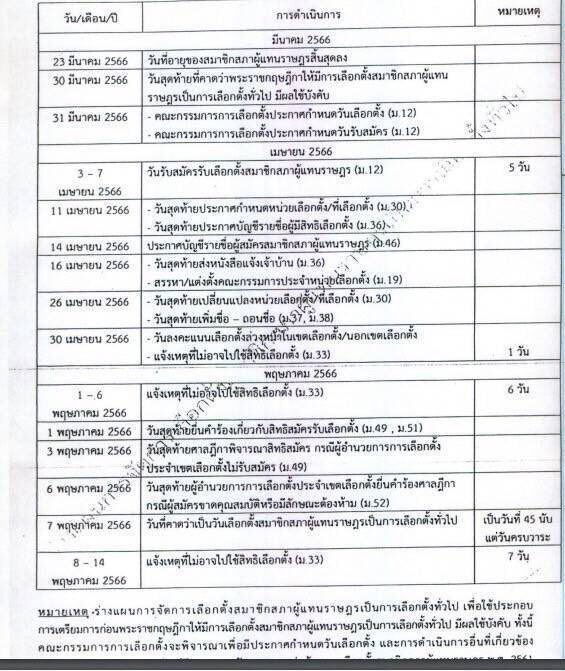 วัน/เดือน/ปี การดำเนินการ หมายเหตุ
มีนาคม 2566
23 มีนาคม 2566 วันที่อายุของสมาชิกสภาผู้แทนราษฎรสิ้นสุดลง
30 มีนาคม 2566 วันสุดท้ายที่คาดว่าพระราชกฤษฎีกาให้มีการเลือกตั้งสมาชิกสภาผู้แทน
ราษฎรเป็นการเลือกตั้งทั่วไป มีผลใช้บังคับ
31 มีนาคม 2566 - คณะกรรมการการเลือกตั้งประกาศกำหนดวันเลือกตั้ง (ม.12)
- คณะกรรมการการเลือกตั้งประกาศกำหนดวันรับสมัคร (ม.12)
เมษายน 2566
3 - 7 วันรับสมัครรับเลือกตั้งสมาชิกสภาผู้แทนราษฎร (ม.12) 5 วัน
เมษายน 2566
11 เมษายน 2566 - วันสุดท้ายประกาศกำหนดหน่วยเลือกตั้ง/ที่เลือกตั้ง (ม.30)
- วันสุดท้ายประกาศบัญชีรายชื่อผู้มีสิทธิเลือกตั้ง (ม.36)
14 เมษายน 2566 ประกาศบัญชีรายชื่อผู้สมัครสมาชิกสภาผู้แทนราษฎร (ม.46)
16 เมษายน 2566 - วันสุดท้ายส่งหนังสือแจ้งเจ้าบ้าน (ม.36)
- สรรหา/แต่งตั้งคณะกรรมการประจำหน่วยเลือกตั้ง (ม.19)
26 เมษายน 2566 - วันสุดท้ายเปลี่ยนแปลงหน่วยเลือกตั้ง/ที่เลือกตั้ง (ม.30)
- วันสุดท้ายเพิ่มชื่อ – ถอนชื่อ (ม.37, ม.38)
30 เมษายน 2566 - วันลงคะแนนเลือกตั้งล่วงหน้าในเขตเลือกตั้ง/นอกเขตเลือกตั้ง
- แจ้งเหตุที่ไม่อาจไปใช้สิทธิเลือกตั้ง (ม.33) 1 วัน
พฤษภาคม 2566
1 - 6 แจ้งเหตุที่ไม่อาจไปใช้สิทธิเลือกตั้ง (ม.33) 6 วัน
พฤษภาคม 2566
1 พฤษภาคม 2566 วันสุดท้ายยื่นคำร้องเกี่ยวกับสิทธิสมัครรับเลือกตั้ง (ม.49 , ม.51)
3 พฤษภาคม 2566 วันสุดท้ายศาลฎีกาพิจารณาสิทธิสมัคร กรณีผู้อำนวยการการเลือกตั้ง
ประจำเขตเลือกตั้งไม่รับสมัคร (ม.49)
6 พฤษภาคม 2566 วันสุดท้ายผู้อำนวยการการเลือกตั้งประจำเขตเลือกตั้งยื่นคำร้องศาลฎีกา
กรณีผู้สมัครขาดคุณสมบัติหรือมีลักษณะต้องห้าม (ม.52)
7 พฤษภาคม 2566 วันที่คาดว่าเป็นวันเลือกตั้งสมาชิกสภาผู้แทนราษฎรเป็นการเลือกตั้งทั่วไป เป็นวันที่ 45 นับ
แต่วันครบวาระ
8 - 14 แจ้งเหตุที่ไม่อาจไปใช้สิทธิเลือกตั้ง (ม.33) 7 วัน
พฤษภาคม 2566
หมายเหตุ -ร่างแผนการจัดการเลือกตั้งสมาชิกสภาผู้แทนราษฎรเป็นการเลือกตั้งทั่วไป เพื่อใช้ประกอบ
การเตรียมการก่อนพระราชกฤษฎีกาให้มีการเลือกตั้งสมาชิกสภาผู้แทนราษฎรเป็นการเลือกตั้งทั่วไป มีผลใช้บังคับ ทั้งนี้
คณะกรรมการการเลือกตั้งจะพิจารณาเพื่อมีประกาศกำหนดวันเลือกตั้ง และการดำเนินการอื่นที่เกี่ยวข้อง